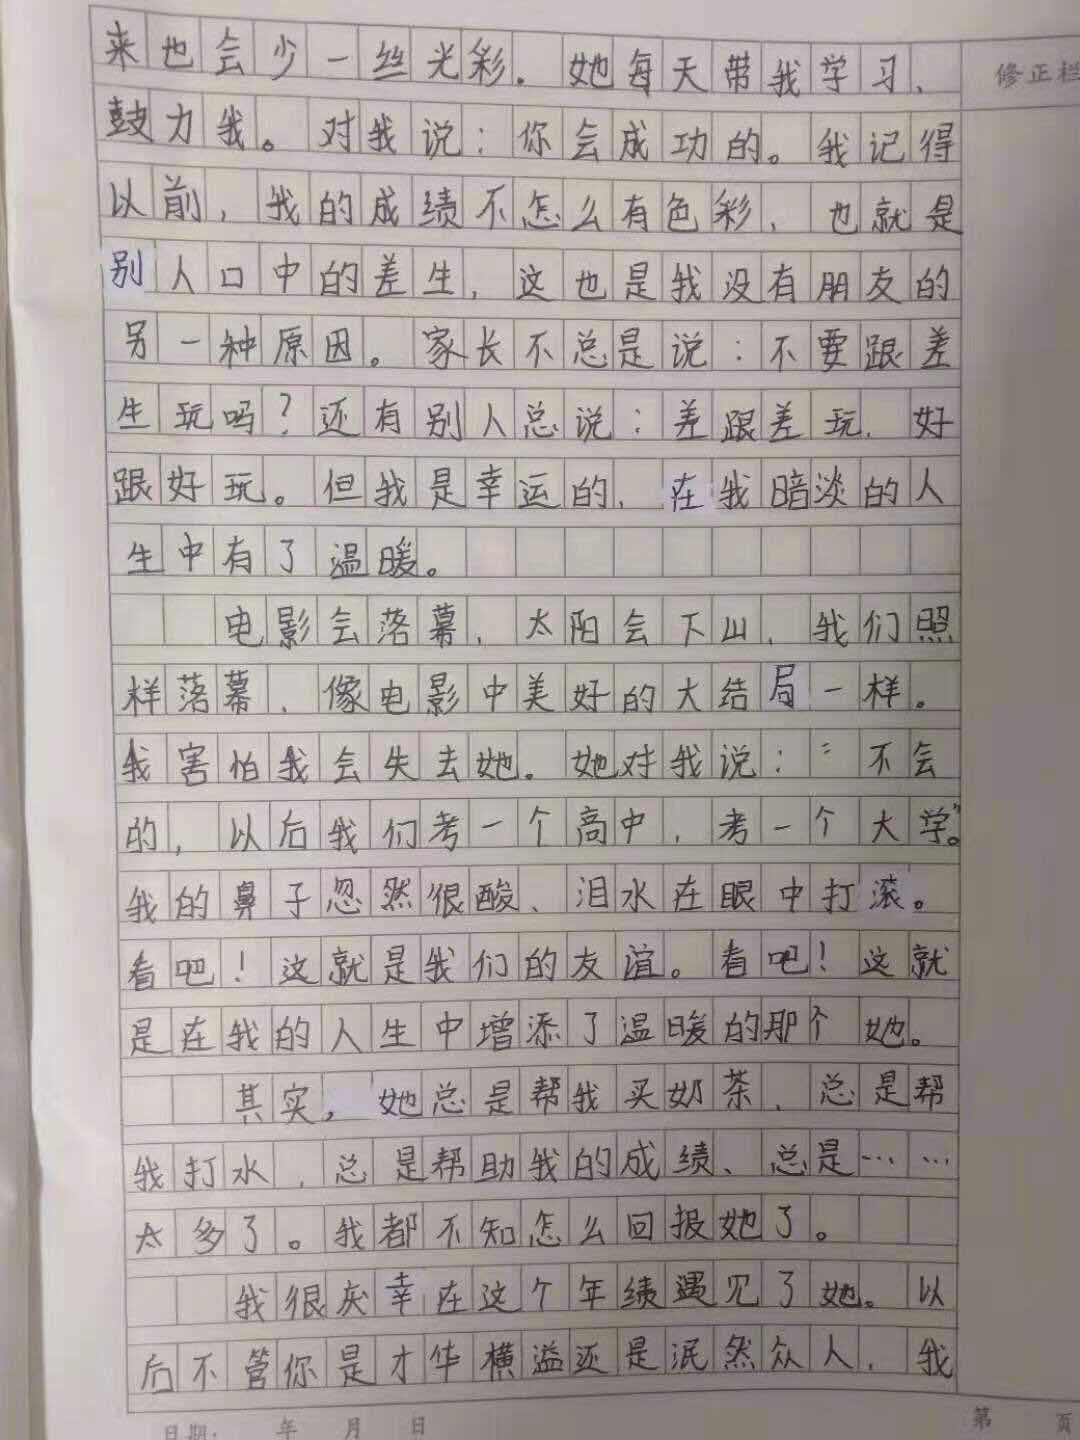 来也会少一丝光彩．她每天带我学习，
修正栏
鼓力我。对我说：你会成功的。我记得
以前，我的成绩不怎么有色彩，也就是
别人口中的差生，这也是我没有朋友的
另一种原因。家长不总是说：不要跟差
生玩吗？还有别人总说：差跟差玩，好
跟好玩。但我是幸运的，在我暗淡的人
生中有了温暖。
电影会落幕，太阳会下山，我们照
样落幕，像电影中美好的大结局一样。
我害怕我会失去她．她对我说：“不会
的，以后我们考一个高中，考一个大学。”
我的鼻子忽然很酸、泪水在眼中打滚。
看吧！这就是我们的友谊。看吧！这就
是在我的人生中增添了温暖的那个她。
其实，她总是帮我买奶茶，总是帮
我打水，总是帮助我的成绩、总是……
太多了。我都不知怎么回报她了。
我很灰幸在这个年绩遇见了她。以
后不管你是才华横溢还是泯然众人，我
日期： 年 月 日
第 页